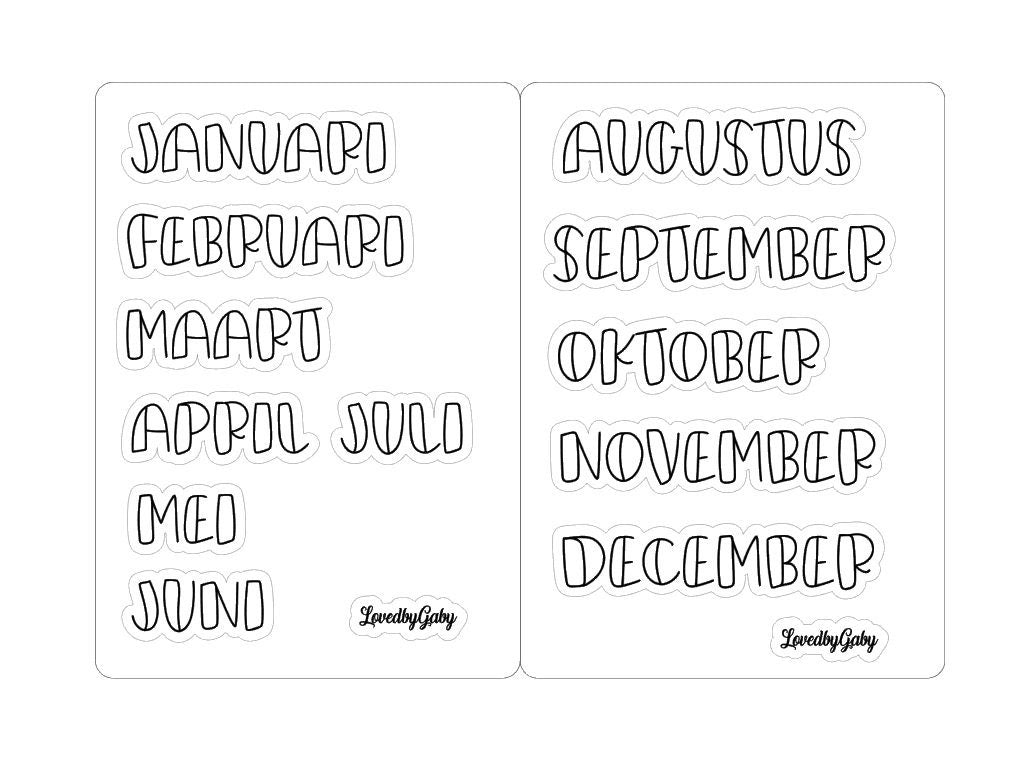 JANUARI
FEBRUARI
MAART
APRIL JULI
MEI
JUNI
LovedbyGaby
AUGUSTUS
SEPTEMBER
OKTOBER
NOVEMBER
DECEMBER
LovedbyGaby